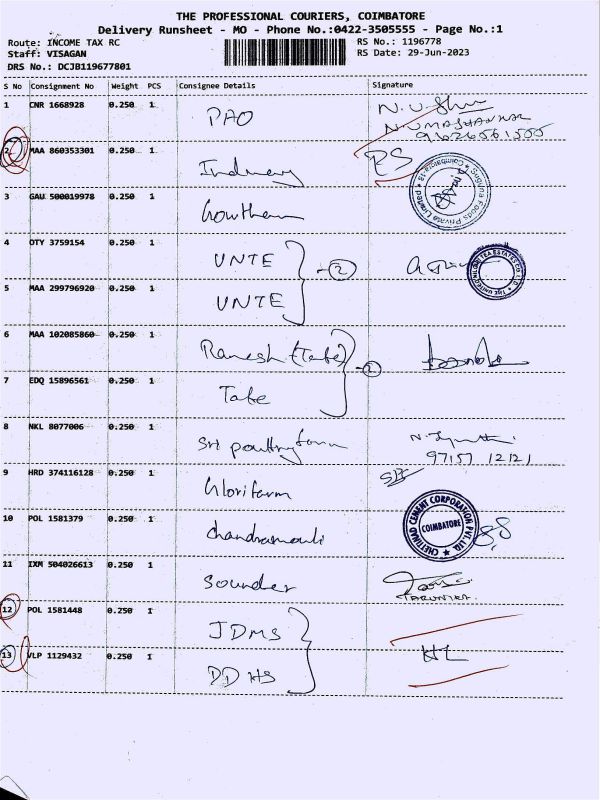 THE PROFESSIONAL COURIERS, COIMBATORE
Delivery Runsheet - MO - Phone No.:0422-3505555 - Page No.:1
Route: INCOME TAX RC RS No.: 1196778
Staff: VISAGAN RS Date: 29-Jun-2023
DRS No.: DCJB119677801
S No Consignment No Weight PCS Consignee Details Signature
1 CNR 1668928 0.250 1 PAO
N. UMASHANKAR
2 MAA 860353301 0.250 1
3 GAU 500019978 0.250 1 Gowtham
4 OTY 3759154 0.250 1 UNTE
2
5 MAA 299796920 0.250 1 UNTE
6 MAA 102085860 0.250 1 Ramesh (Tate)
2
7 EDQ 15896561 0.250 1 Tate
8 NKL 8077006 0.250 1 Sri poultry farm
97157 12121
9 HRD 374116128 0.250 1 Glorifarm
10 POL 1581379 0.250 1 Chandramouli
CHETTINAD CEMENT CORPORATION PVT. LTD.
COIMBATORE
11 IXM 504026613 0.250 1 Sounder
12 POL 1581448 0.250 1 JDMS
13 VLP 1129432 0.250 1 DDHS